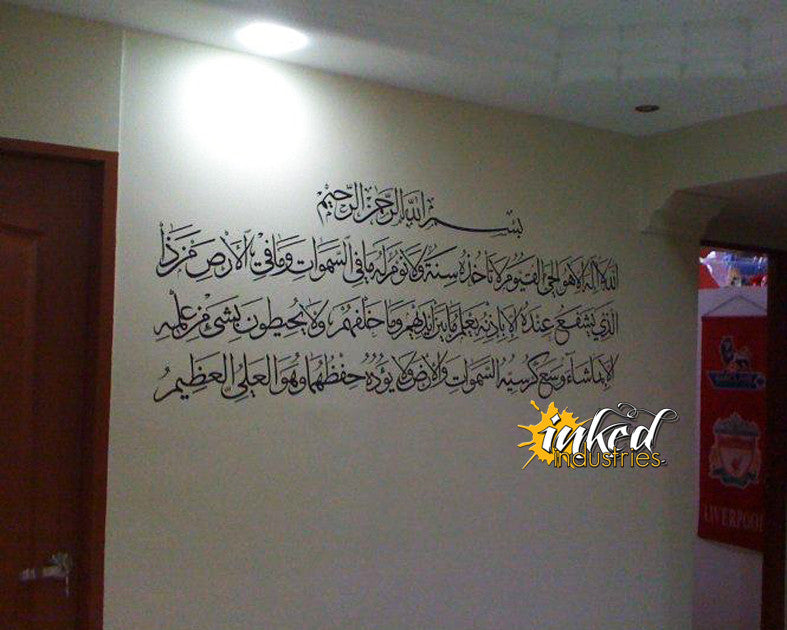 بسم الله الرحمن الرحيم
الله لا اله الا هو الحي القيوم لا تأخذه سنة ولا نوم له ما في السموات وما في الأرض من ذا
الذي يشفع عنده الا باذنه يعلم ما بين ايديهم وما خلفهم ولا يحيطون بشئ من علمه
الا بما شاء وسع كرسيه السموات والارض ولا يؤده حفظهما وهو العلي العظيم
inked
industries
LIVERPOOL